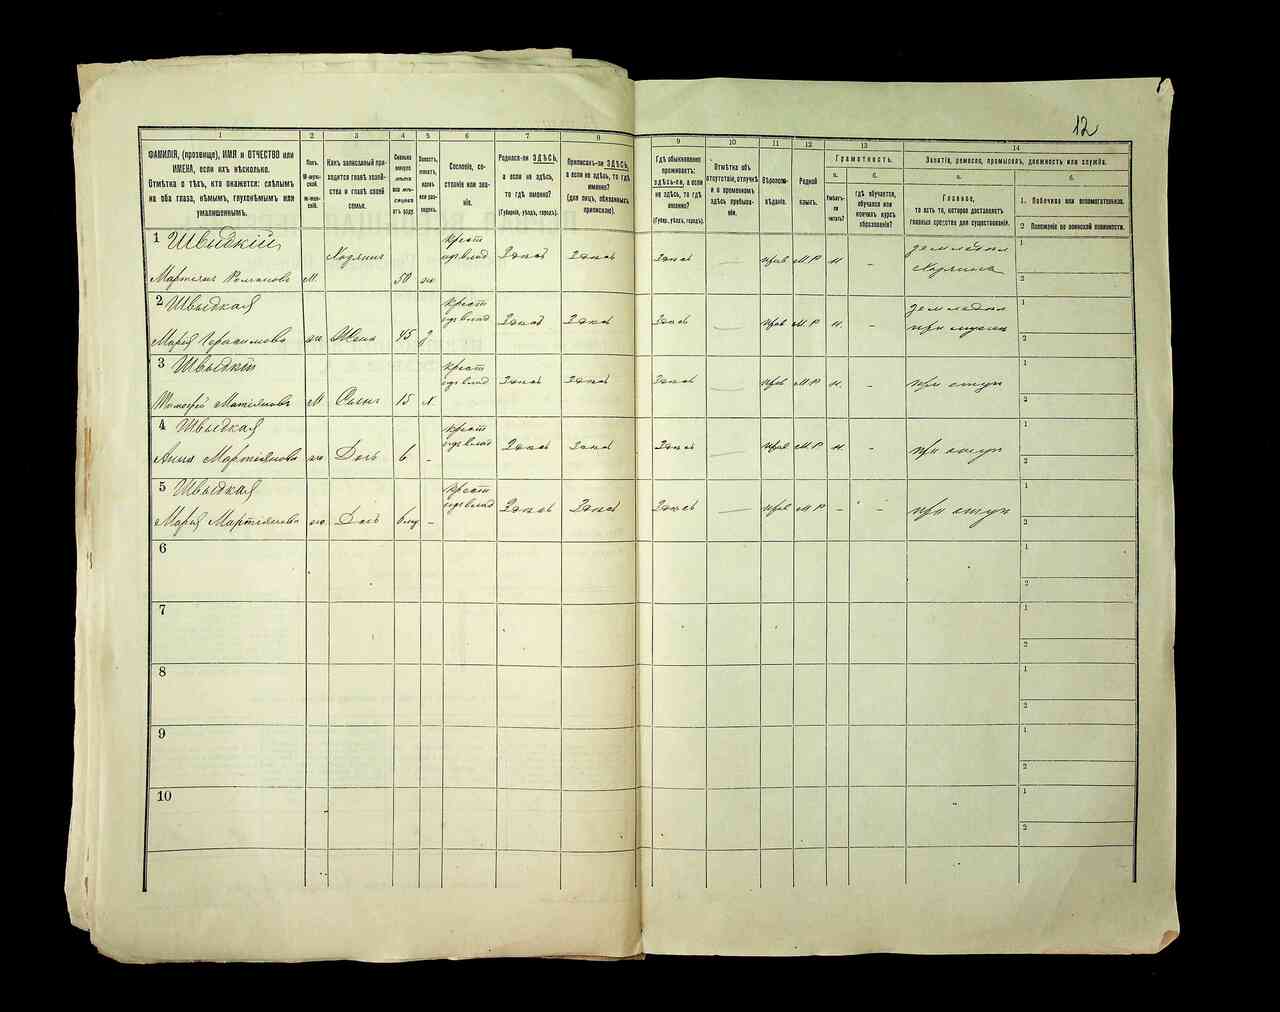 12
1
2
3
4
5
6
7
8
9
10
11
12
13
14
ФАМИЛІЯ, (прозвище), ИМЯ и ОТЧЕСТВО или
ИМЕНА, если ихъ нѣсколько.
Отмѣтка о тѣхъ, кто окажется: слѣпымъ
на оба глаза, нѣмымъ, глухонѣмымъ или
умалишеннымъ.
Полъ.
М-мужской.
ж-женскій.
Какъ записанный при-
ходится главѣ хозяй-
ства и главѣ своей
семьи.
Сколько
минуло
лѣтъ
или мѣ-
сяцевъ
отъ роду.
Холостъ,
женатъ,
вдовъ
или раз-
веденъ.
Сословіе, со-
стояніе или зва-
ніе.
Родился-ли ЗДѢСЬ,
а если не здѣсь,
то гдѣ именно?
(Губернія, уѣздъ, городъ).
Приписанъ-ли ЗДѢСЬ,
а если не здѣсь, то гдѣ
именно?
(для лицъ, обязанныхъ
припискою).
Гдѣ обыкновенно
проживаетъ:
здѣсь-ли, а если
не здѣсь, то гдѣ
именно?
(Губер., уѣздъ, городъ).
Отмѣтка объ
отсутствіи, отлучкѣ
и о временномъ
здѣсь пребыва-
ніи.
Вѣроиспо-
вѣданіе.
Родной
языкъ.
Грамотность.
а.
Умѣетъ-
ли
читать?
б.
гдѣ обучается,
обучался или
кончилъ курсъ
образованія?
Занятіе, ремесло, промыселъ, должность или служба.
а.
Главное,
то есть то, которое доставляетъ
главныя средства для существованія.
б.
1. Побочное или вспомогательное.
2 Положеніе по воинской повинности.
1 Швидкій
Мартіянъ Романовъ М. Хозяинъ 50 ж. крест Здѣсь Здѣсь Здѣсь — прав М Р н. - земледѣл хозяинъ 1 2
2 Швыдкая
Марія Герасимова ж. Жена 45 з крест Здѣсь Здѣсь Здѣсь — прав М. Р н. - земледѣл при мужѣ 1 2
3 Швыдкій
Тимофей М. Сынъ 15 х. крест Здѣсь Здѣсь Здѣсь — прав М Р н. - при отцу 1 2
4 Швыдкая
Анна Мартіянова ж. Дочь 6 - крест Здѣсь Здѣсь Здѣсь — прав М Р н. - при отцу 1 2
5 Швыдкая
Марія Мартіянова ж. Дочь - крест Здѣсь Здѣсь Здѣсь — прав М Р - - при отцу 1 2
6 1 2
7 1 2
8 1 2
9 1 2
10 1 2